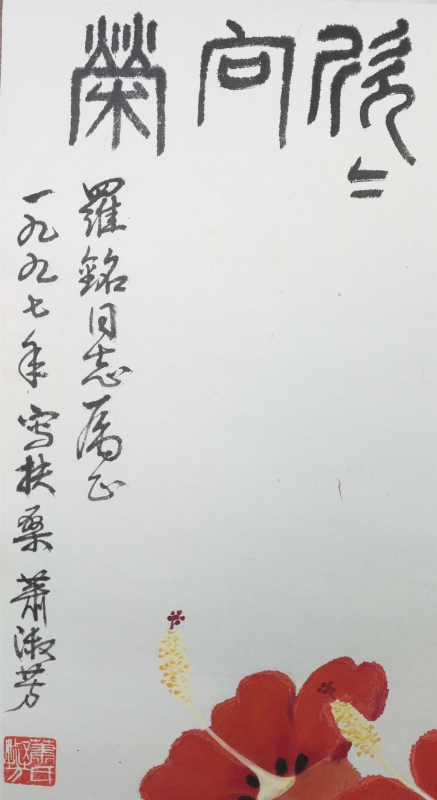 欣〻向榮
羅銘同志属正
一九九七年写扶桑 蕭淑芳
蕭氏淑芳